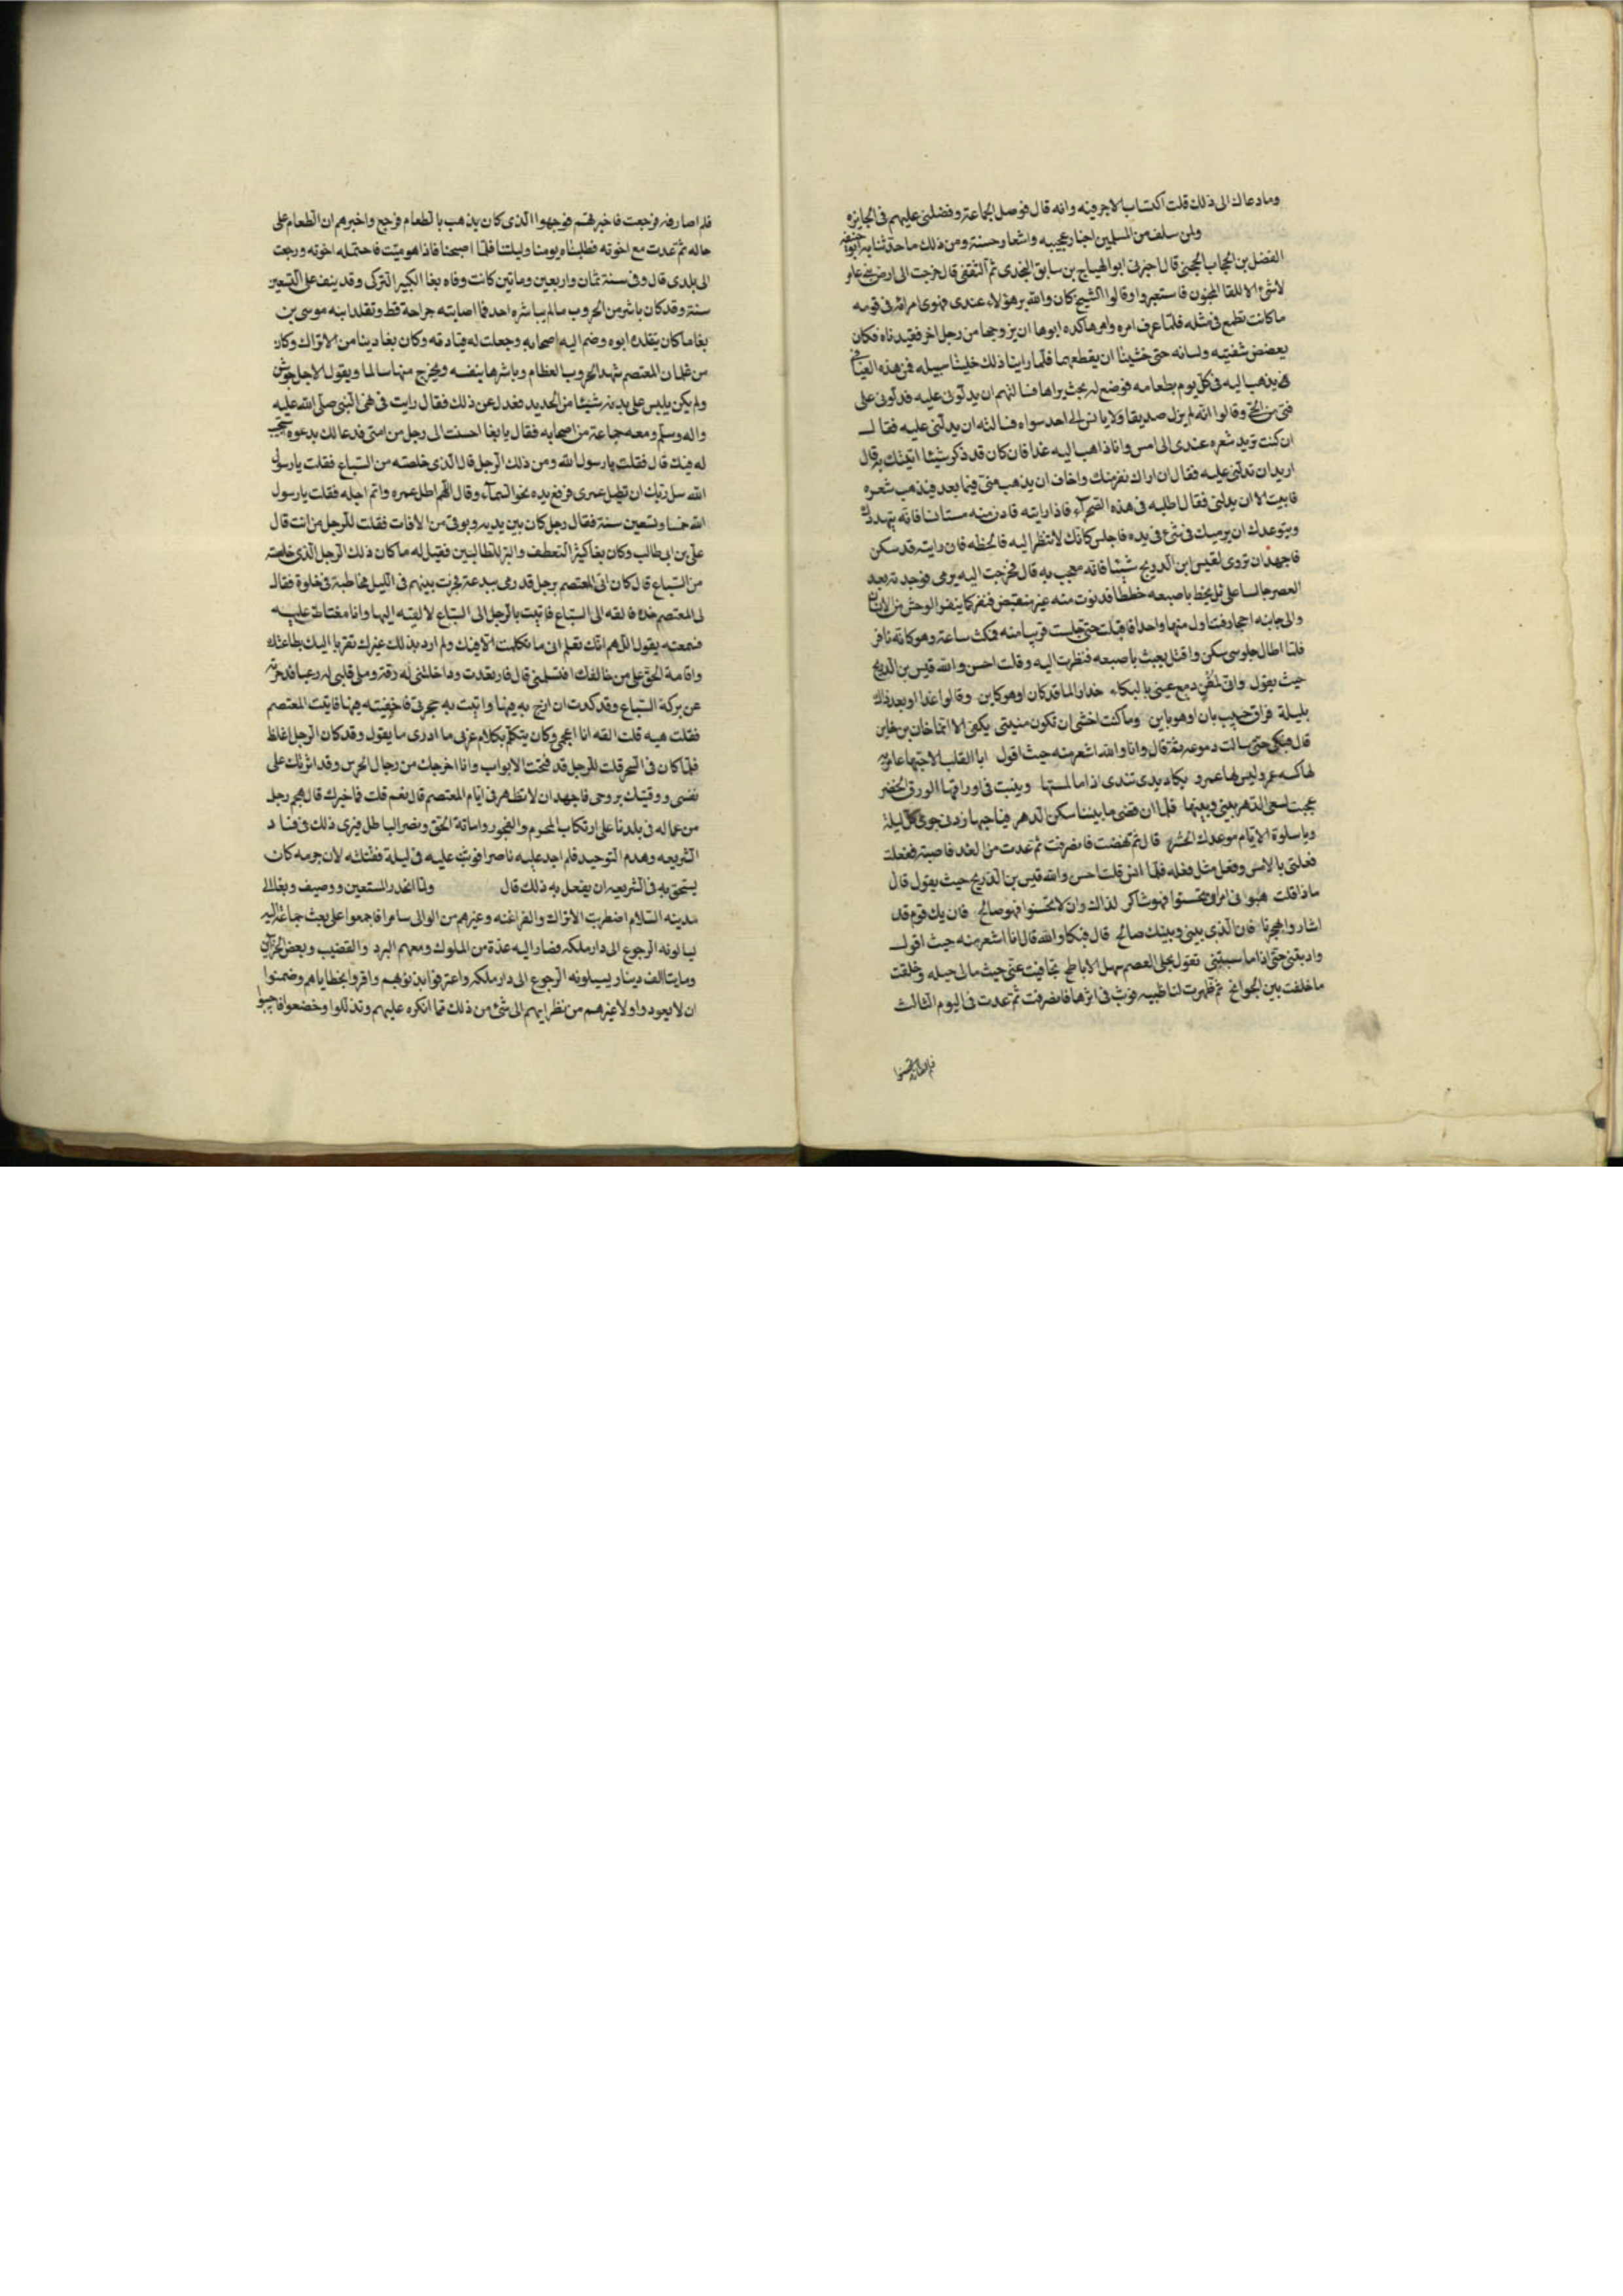 وما دعاك الى ذلك قلت اكتساب الاجر فيه وانه قال فوصل الجماعة وفضلنى عليهم فى الجايزه
ولمن سلف من المسلمين اخبار عجيبه واشعار حسنة ومن ذلك ما حدثنا به ابو خليفه
الفضل بن الحباب الجمحى قال اخبرنى ابو الهياج بن سابق النجدى ثم الثقفى قال خرجت الى ارض بنى عامر
لا شئ الا للقا المجنون فاستعبروا وقالوا الشيخ كان والله بر هؤلاء عندى فهوى امراة فى قومه
ما كانت تطمع فى مثله فلما عرف امره وامرها كده ابوها ان يزوجها من رجل اخر فقيدناه فكان
يعضض شفتيه ولسانه حتى خشينا ان يقطعهما فلما راينا ذلك خلينا سبيله فمر فى هذه الفيافى
يذهب اليه فى كل يوم بطعامه فوضع له بحيث يراها فسالتهم ان يدلونى عليه فدلونى على
فتى من الحى وقالوا انه لم يزل صديقا ولا يانس الى احد سواه فسالته ان يدلنى عليه فقال
ان كنت تريد شعره عندى الى امس وانا ذاهب اليه غدا فان كان قد ذكر شيئا اتيتك به قال
اريد ان تدلنى عليه فقال ان اراك نفر منك واخاف ان يذهب منى فيما بعد فيذهب شعره
فابيت الا ان يدلنى فقال اطلبه فى هذه الصحراء فاذا رايته فادن منه مستانسا فانه يتهددك
ويتوعدك ان يرميك فى شئ فى يده فاجلس كانك لا تنظر اليه فالحظه فان رايته قد سكن
فاجهد ان تروى لقيس ابن الدريج شيئا فانه معجب به قال فخرجت اليه يومى فوجدته بعد
العصر جالسا على تل يخط باصبعه خططا فدنوت منه غير منقبض فنفر كما ينفر الوحش من الانسان
والى جانبه احجار فتناول منها واحدا فاقبلت حتى جلست قريبا منه فمكث ساعة وهو كانه نافر
فلما اطال جلوسى سكن واقبل يعبث باصبعه فنظرت اليه وقلت احسن والله قيس بن الدريج
حيث يقول وانى لمفن دمع عينى بالبكاء حذار الما قد كان او هو كاين وقالوا غدا او بعد ذاك
بليلة فراق حبيب بان او هو باين وما كنت اخشى ان تكون منيتى بكفى الا انما خان من خاين
قال فبكى حتى سالت دموعه ثم قال وانا والله اشعر منه حيث اقول ابا القلب الا حبها عامريه
لها كنيه عمرو ليس لها عمرو يكاد يدى تندى اذا ما لمستها وينبت فى اوراقها الورق الخضر
عجبت لسعى الدهر بينى وبينها فلما انقضى ما بيننا سكن الدهر فيا حبها زدنى جوى كل ليلة
ويا سلوة الايام موعدك الحشر قال ثم نهضت فانصرفت ثم عدت من الغد فاصبته ففعلت
فعلتى بالامس وفعل مثل فعله فلما انس قلت احسن والله قيس بن الدريج حيث يقول قال
ماذا قلت هبونى امراء ان تحسنوا فهو شاكر لذاك وان لا تحسنوا فهو صالح فان يك قوم قد
اشاروا بهجرنا فان الذى بينى وبينك صالح قال فبكا والله قال انا اشعر منه حيث اقول
وادنيتنى حتى اذا ما سبيتنى بقول يحل العصم سهل الاباطح تجافيت عنى حيث ما لى حيله وخلفت
ما خلفت بين الجوانح ثم ظهرت لنا ظبيه فوثب فى اثرها فانصرفت ثم عدت فى اليوم الثالث
فلم اصادفه فرجعت فاخبرتهم فوجهوا الذى كان يذهب بالطعام فرجع واخبرهم ان الطعام على
حاله ثم عدت مع اخوته فطلبناه يومنا وليلتنا فلما اصبحنا فاذا هو ميت فاحتمله اخوته ورجعت
الى بلدى قال وفى سنة ثمان واربعين وماتين كانت وفاه بغا الكبير التركى وقد ينف على التسعين
سنة وقد كان باشر من الحروب ما لم يباشره احد فما اصابته جراحة قط وتقلد ابنه موسى بن
بغا ما كان يتقلده ابوه وضم اليه اصحابه وجعلت له قيادته وكان بغا دينا من الاتراك وكان
من غلمان المعتصم شهد الحروب العظام وباشرها بنفسه ويخرج منها سالما ويقول الاجل جوشن
ولم يكن يلبس على بدنه شيئا من الحديد فعدل عن ذلك فقال رايت فى النبى صلى الله عليه
واله وسلم ومعه جماعة من اصحابه فقال يا بغا احسنت الى رجل من امتى فدعا لك بدعوه
له فيك قال فقلت يا رسول الله ومن ذلك الرجل قال الذى خلصته من السباع فقلت يا رسول
الله سل ربك ان تطيل عمرى فرفع يده نحو السماء وقال اللهم اطل عمره واتم اجله فقلت يا رسول
الله خمسا وتسعين سنة فقال رجل كان بين يديه ويوقى من الافات فقلت للرجل من انت قال
على بن ابى طالب وكان بغا كثير التعطف والبر للطالبين فقيل له ما كان ذلك الرجل الذى خلصته
من السباع قال كان اتى المعتصم برجل قد رمى ببدعة فجرت بينهم فى الليل مخاطبة فى خلوة فقال
لى المعتصم خذه فالقه الى السباع فاتيت بالرجل الى السباع لالقيه اليها وانا مغتاظ عليه
فسمعته يقول اللهم انك تعلم انى ما تكلمت الا فيك ولم ارد بذلك غيرك تقربا اليك بطاعتك
واقامة الحق على من خالفك افتسلمنى قال فارتعدت وداخلتنى له رقة وملى قلبى له رعبا فجذبته
عن بركة السباع وقد كدت ان ازج به فيها واتيت به حجرتى فاخفيته فيها فاتيت المعتصم
فقلت هيه قلت القه انا اعجمى وكان يتكلم بكلام عربى ما ادرى ما يقول وقد كان الرجل اغلظ
فلما كان فى السحر قلت للرجل قد فتحت الابواب وانا اخرجك من رجال الحرس وقد اثرتك على
نفسى ووقيتك بروحى فاجهد ان لا تظهر فى ايام المعتصم قال نعم قلت فما خبرك قال هجم رجل
من عماله فى بلدنا على ارتكاب المحروم والفجور واماتة الحق ونصر الباطل فسرى ذلك فى فساد
الشريعه وهدم التوحيد فلم اجد عليه ناصرا فوثبت عليه فى ليلة فقتلته لان جرمه كان
يستحق به فى الشريعه ان يفعل به ذلك قال ولما انحدر المستعين ووصيف وبغا الى
مدينه السلام اضطربت الاتراك والفراغنه وغيرهم من الوالى سامرا فاجمعوا على بعث جماعة اليه
يسالونه الرجوع الى دار ملكه فصار اليه عدة من الملوك ومعهم البرد والقضيب وبعض الخزاين
ومايتا الف دينار يسيلونه الرجوع الى دار ملكه واعترفوا بذنوبهم واقروا بخطاياهم وضمنوا
ان لا يعودوا ولا غيرهم من نظرايهم الى شئ من ذلك مما انكره عليهم وتذللوا وخضعوا فاجيبوا